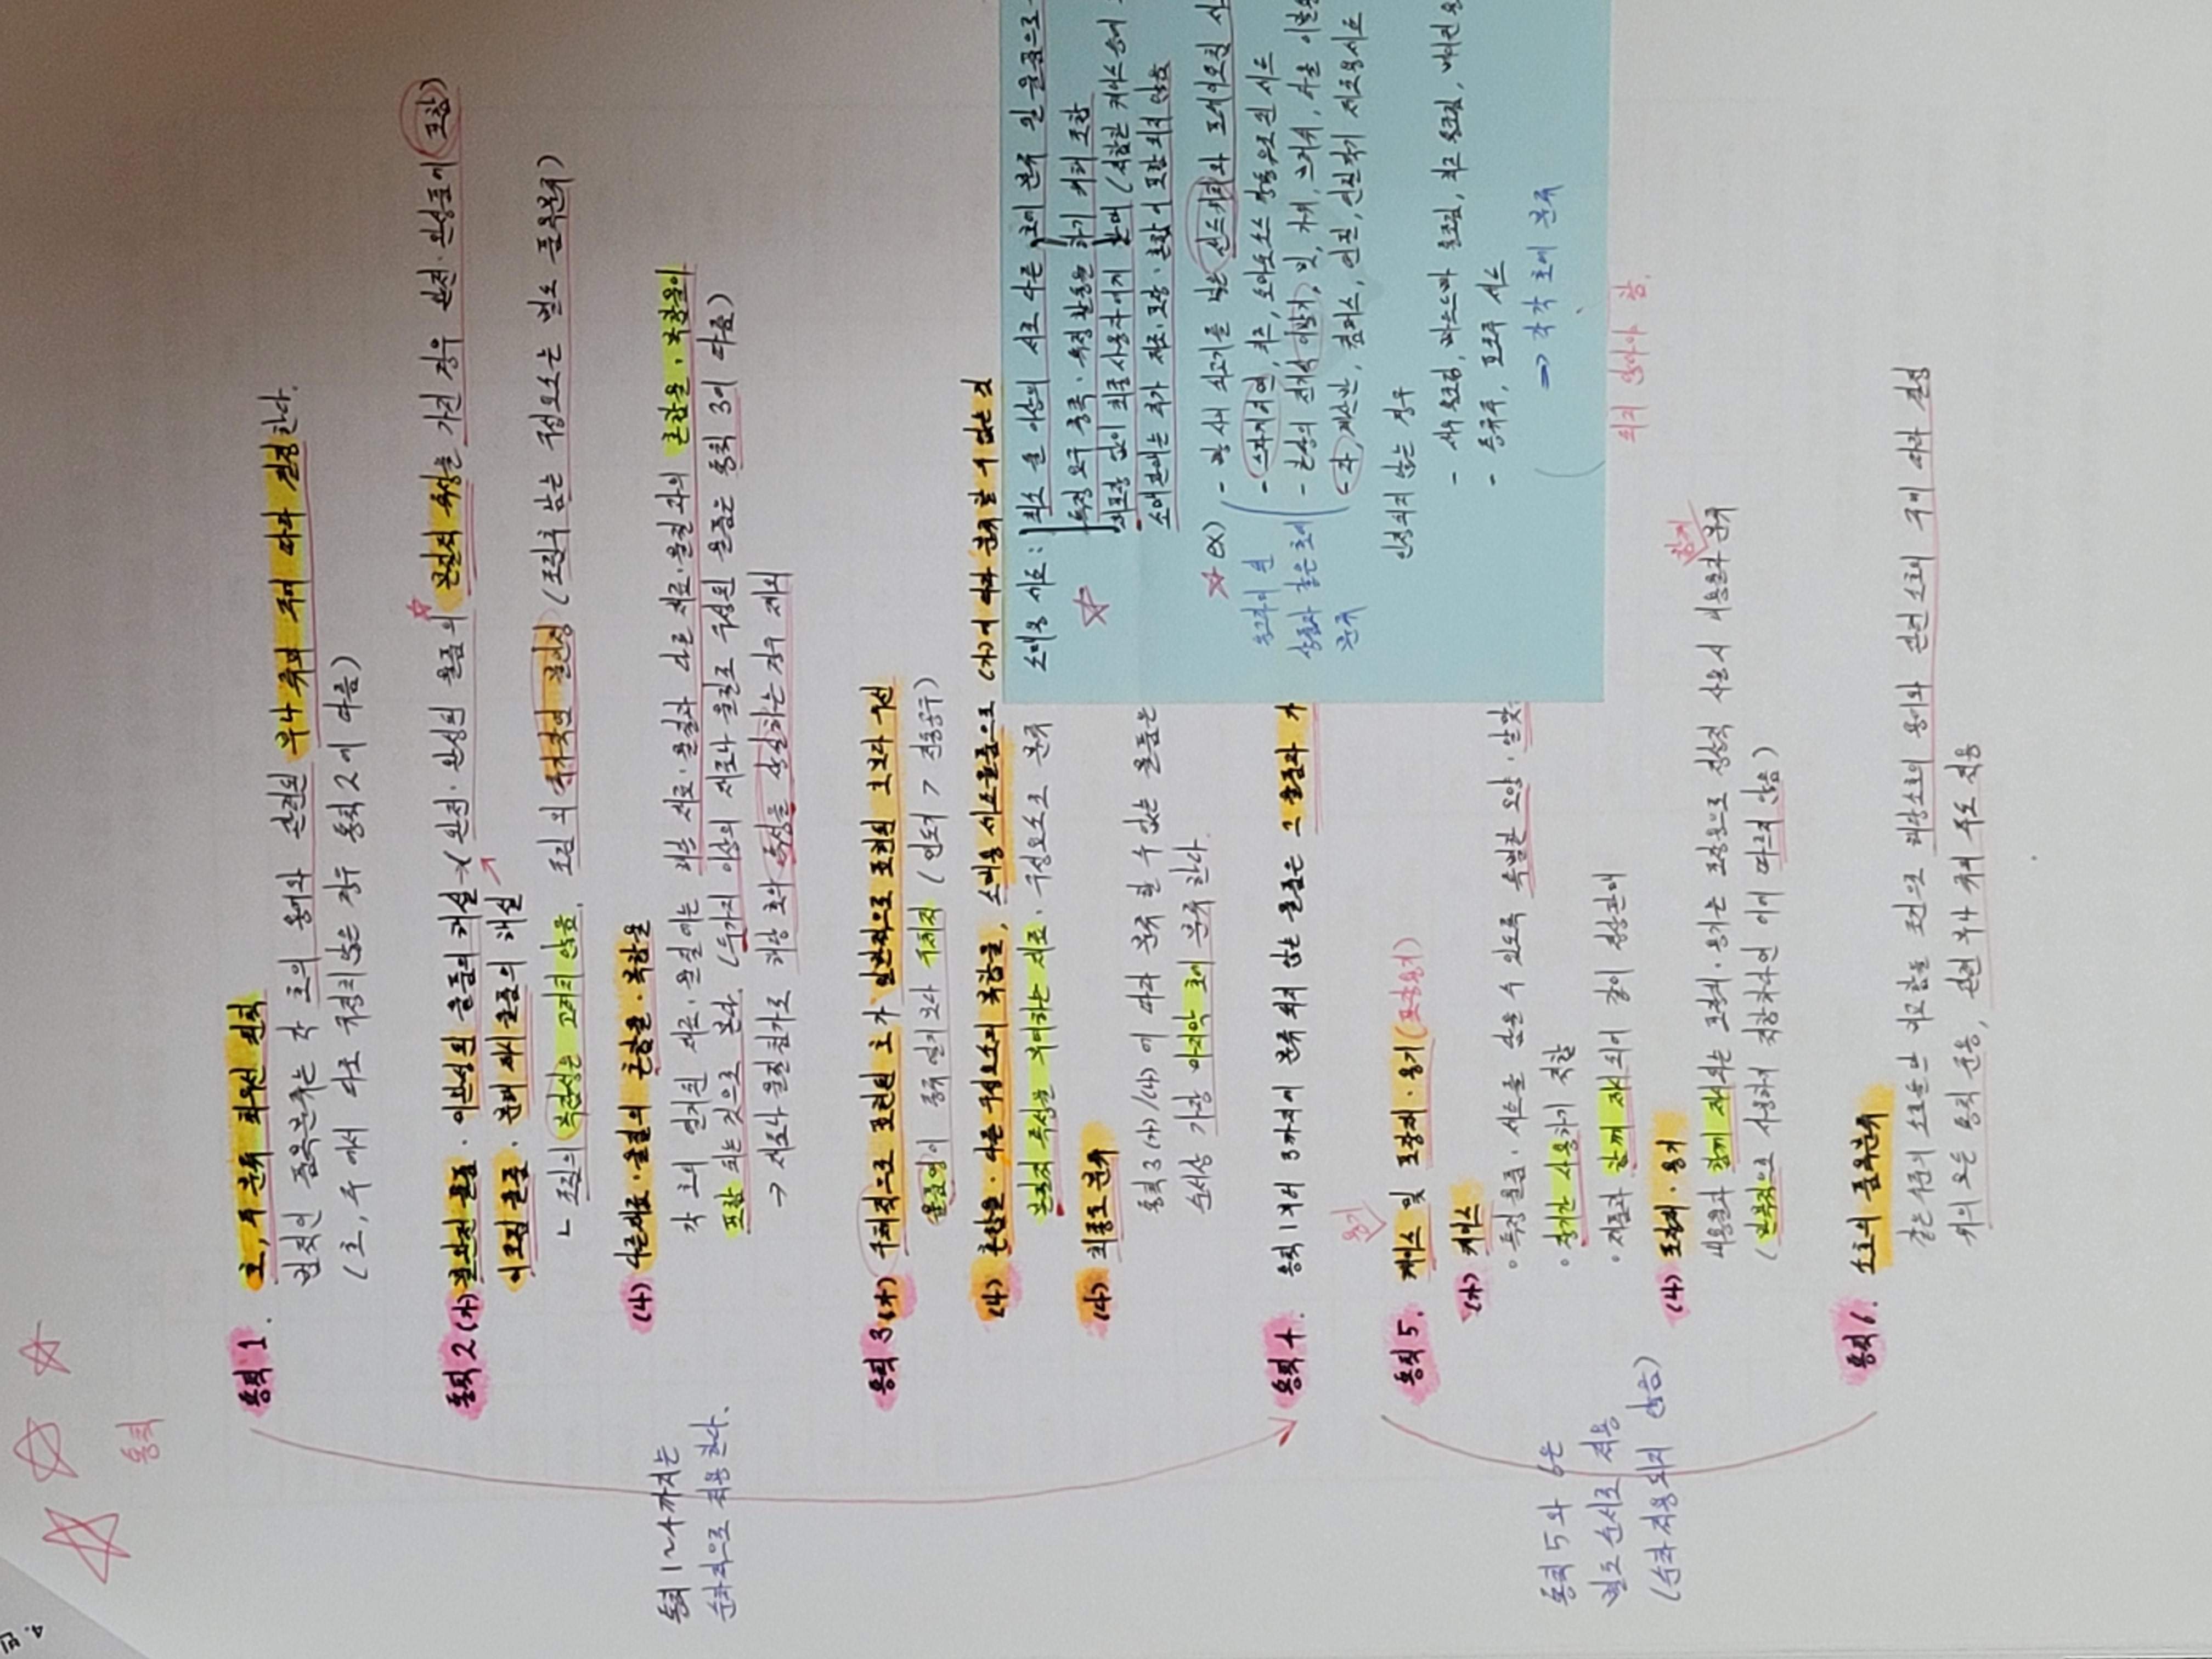 통칙
통칙 1. 호, 주 분류 최우선 원칙
법적인 품목분류는 각 호의 용어와 관련된 부나 류의 주에 따라 결정한다.
(호, 주 에서 따로 규정치 않는 경우 통칙 2에 따름)
통칙 2 (가) 불완전 물품 · 미완성된 물품의 해설 (완전 · 완성된 물품의 본질적 특성을 가진 경우 완전 · 완성품에 포함)
미조립 물품 · 분해 제시 물품의 해설
ㄴ 조립의 복잡성는 고려치 않음. 조립 외 추가적인 불인정 (조립후 남는 구성요소는 별도 품목분류)
(나) 다른재료 · 물질의 혼합물 · 복합물
각 호의 열거된 재료 · 물질에는 해당 재료 · 물질과 다른 재료 · 물질 과의 혼합물 · 복합물이
포함 되는 것으로 본다. (두가지 이상의 재료나 물질로 구성된 물품은 통칙 3에 따름)
→ 재료나 물질첨가로 해당 호의 특성을 상실하는 경우 제외
통칙 1~4까지는
순차적으로 적용한다.
통칙 3 (가) 구체적으로 표현된 호가 일반적으로 표현된 호보다 우선
물품명이 종류 열거 보다 구체적 (면도기 > 전동공구)
(나) 혼합물 · 다른 구성요소의 복합물, 소매용 세트물품으로 (가)에 따라 분류 할 수 없는 것
본질적 특성을 부여하는 재료 · 구성요소로 분류
(다) 최종호 분류
통칙 3 (가)/(나) 에 따라 분류 할 수 없는 물품은
순서상 가장 마지막 호에 분류 한다.
소매용 세트 : 최소 둘 이상의 서로 다른 호에 분류 될 물품으로
특정 요구 충족 · 특정 활동을 하기 위해 조합
재포장 없이 최종사용자에게 판매 (적합한 케이스 등에
소매판매는 추가 제조 · 포장 · 혼합이 포함 되지 않음
ex) - 빵 사이 쇠고기를 넣은 샌드위치와 포테이토칩 사
- 스파게티면, 치즈, 토마토소스 깡통으로된 세트
- 한쌍의 전기식 이발기, 빗, 가위, 브러쉬, 직물
- 자, 계산판, 컴퍼스, 연필, 연필깎이 제도용세트
상품과 같은 호에
분류
인정되지 않는 경우
- 새우 통조림, 파스타 통조림, 치즈 통조림, 베이컨
- 증류주, 포도주 세트
→ 각각 호에 분류
통칙 4. 통칙 1부터 3까지에 분류 되지 않는 물품은 그 물품과 가
통칙 5. 케이스 및 포장재 · 용기 (포장용기)
용기
(가) 케이스
◦ 특정물품 · 세트를 담을 수 있도록 특별한 모양 · 알맞
◦ 장기간 사용하기 적합
◦ 제품과 함께 제시되어 같이 정상판매
되지 않아야 함.
(나) 포장재 · 용기
내용물과 함께 제시되는 포장재 · 용기는 포장용으로 정상적 사용시 내용물과 분류
함께
(반복적으로 사용하기 적합하다면 이에 따르지 않음)
통칙 5 와 6은
별도 순서로 적용
(순차적용되지 않음)
통칙 6. 소호의 품목분류
같은 수준의 소호들만 비교함을 조건으로 해당소호의 용어와 관련 소호의 주에 따라 결정
위의 모든 통칙 준용, 관련 부나 류의 주도 적용